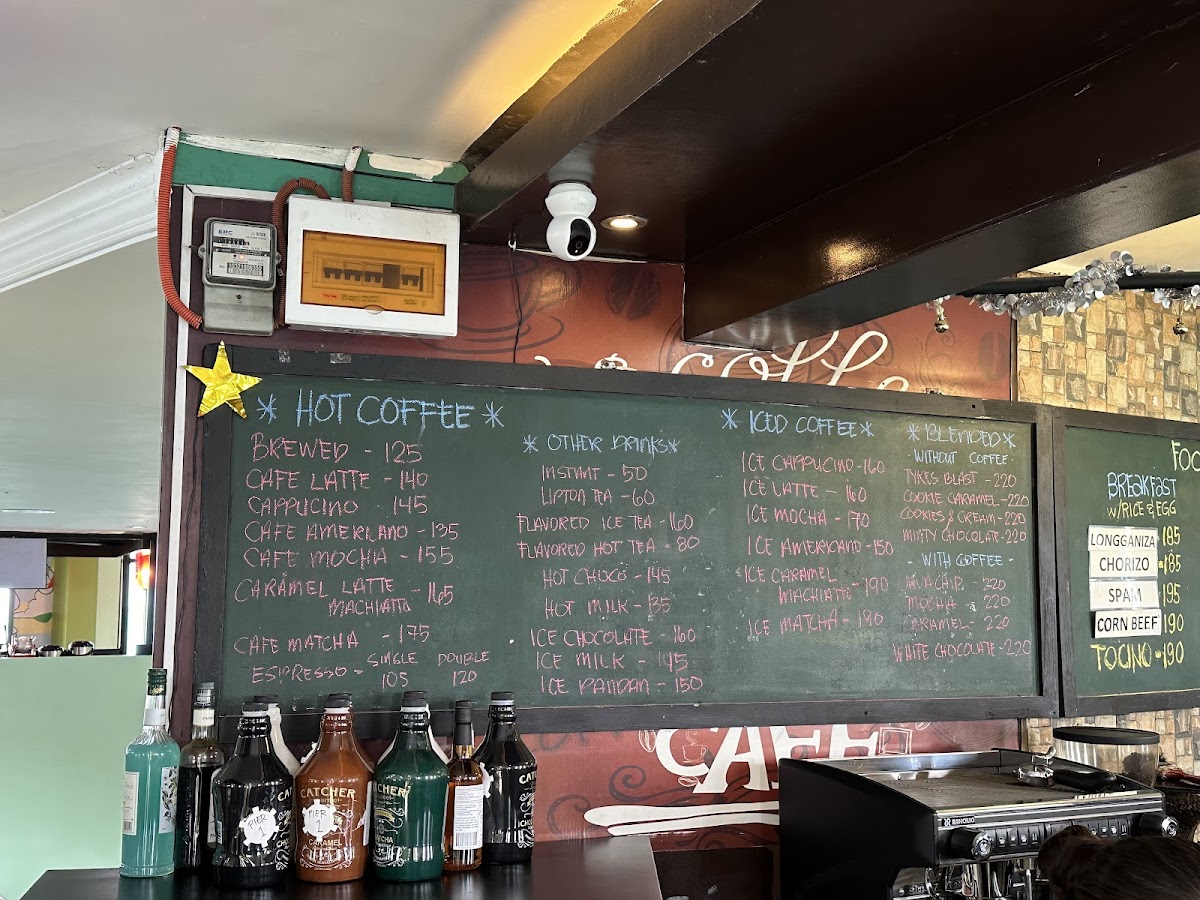 * HOT COFFEE *
BREWED - 125
CAFE LATTE - 140
CAPPUCINO - 145
CAFE AMERICANO - 135
CAFE MOCHA - 155
CARAMEL LATTE
MACHIATTO - 165
CAFE MATCHA - 175
ESPRESSO - SINGLE DOUBLE
105 120
* OTHER DRINKS *
INSTANT - 50
LIPTON TEA - 60
FLAVORED ICE TEA - 160
FLAVORED HOT TEA - 80
HOT CHOCO - 145
HOT MILK - 135
ICE CHOCOLATE - 160
ICE MILK - 145
ICE PANDAN - 150
* ICED COFFEE *
ICE CAPPUCINO - 160
ICE LATTE - 160
ICE MOCHA - 170
ICE AMERICANO - 150
ICE CARAMEL
MACHIATTE - 190
ICE MATCHA - 190
* BLENDED *
- WITHOUT COFFEE -
TYKES BLAST - 220
COOKIE CARAMEL - 220
COOKIES & CREAM - 220
MINTY CHOCOLATE - 220
- WITH COFFEE -
220
MOCHA - 220
CARAMEL - 220
WHITE CHOCOLATE - 220
FOO
BREAKFAST
W/ RICE & EGG
LONGGANIZA 185
CHORIZO - 185
SPAM 195
CORN BEEF 190
TOCINO - 190
Coffee
CAFE
CATCHER
PIER 1
CATCHER
PIER 1
CARAMEL
RANCILIO